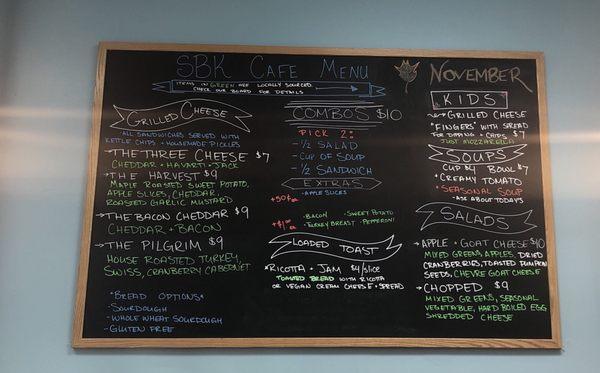 SBK CAFE MENU
ITEMS IN GREEN ARE LOCALLY SOURCED
CHECK OUR BOARD FOR DETAILS
NOVEMBER
GRILLED CHEESE
·ALL SANDWICHES SERVED WITH
KETTLE CHIPS + HOMEMADE PICKLES
→THE THREE CHEESE $7
CHEDDAR · HAVARTI · JACK
→THE HARVEST $9
MAPLE ROASTED SWEET POTATO,
APPLE SLICES, CHEDDAR,
ROASTED GARLIC MUSTARD
→THE BACON CHEDDAR $9
CHEDDAR + BACON
→THE PILGRIM $9
HOUSE ROASTED TURKEY,
SWISS, CRANBERRY CABERNET
*BREAD OPTIONS*
-SOURDOUGH
-WHOLE WHEAT SOURDOUGH
-GLUTEN FREE
COMBOS $10
PICK 2:
-1/2 SALAD
-CUP OF SOUP
-1/2 SANDWICH
EXTRAS
+50¢
·APPLE SLICES
+$1.00
·BACON ·SWEET POTATO
·TURKEY BREAST ·PEPPERONI
LOADED TOAST
*RICOTTA + JAM $4/SLICE
TOASTED BREAD WITH RICOTTA
OR VEGAN CREAM CHEESE + SPREAD
KIDS
→GRILLED CHEESE
"FINGERS" WITH SPREAD
FOR DIPPING + CHIPS $7
JUST MOZZARELLA
SOUPS
CUP $4 BOWL $7
·CREAMY TOMATO
·SEASONAL SOUP
-ASK ABOUT TODAYS
SALADS
→APPLE + GOAT CHEESE $10
MIXED GREENS, APPLES, DRIED
CRANBERRIES, TOASTED PUMPKIN
SEEDS, CHEVRE GOAT CHEESE
→CHOPPED $9
MIXED GREENS, SEASONAL
VEGETABLE, HARD BOILED EGG
SHREDDED CHEESE